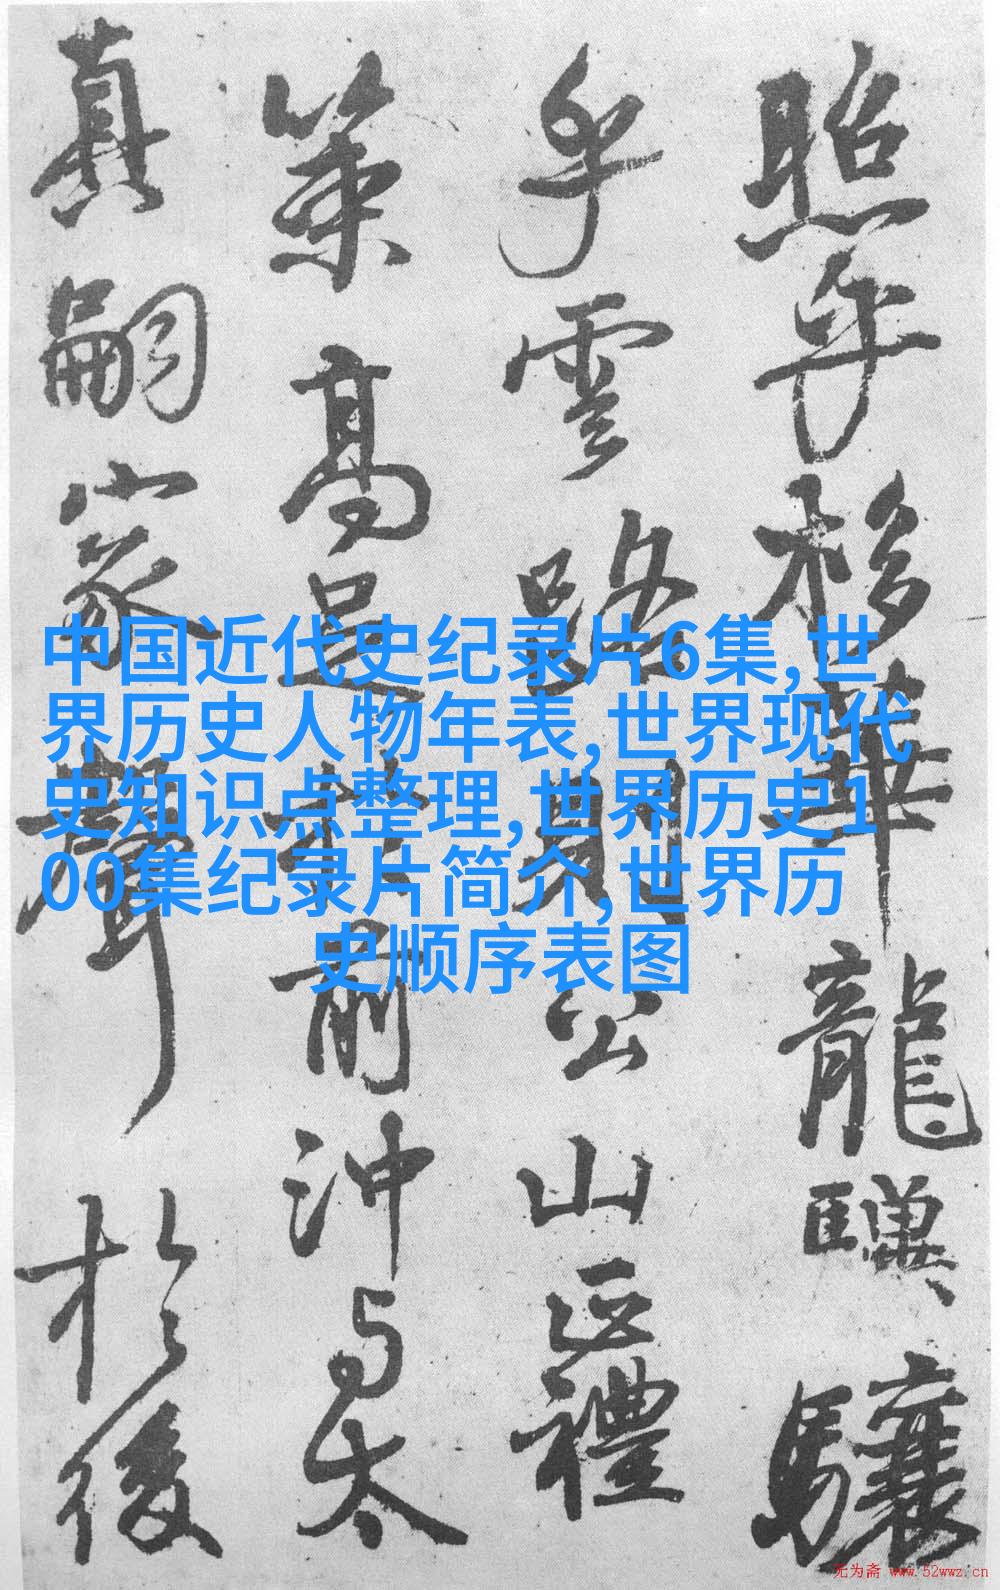 照乎栘華龍驥驤
乎雲路則公山正禮
策高足於前冲与太
真嗣家聲於後
中国近代史纪录片6集,世
界历史人物年表,世界现代
史知识点整理,世界历史1
00集纪录片简介,世界历
史顺序表图
无为斋 www.52wwz.cn